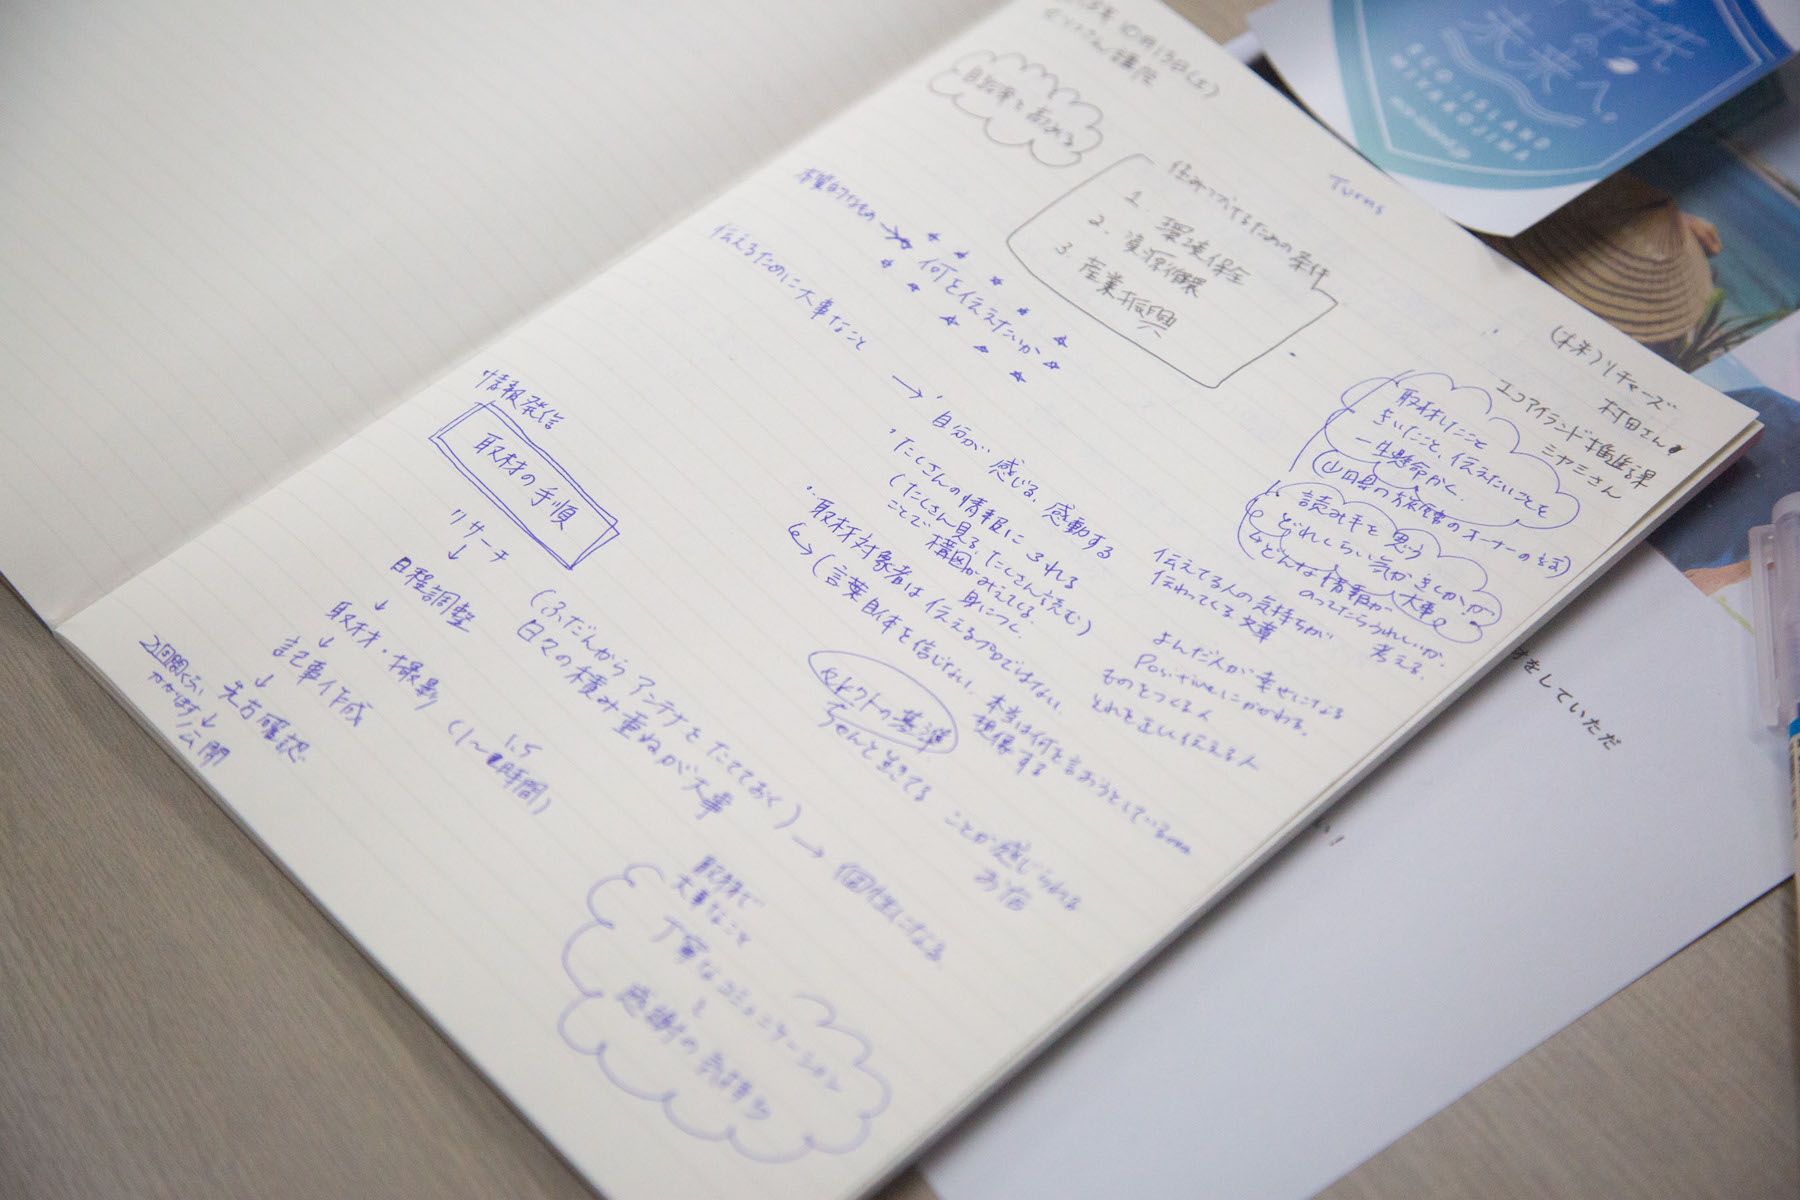 10月13日(土)
さん講座
住みつづけるための条件
1. 環境保全
2. 資源循環
3. 産業振興
Turns
(株)リチャーズ
村田さん
エコアイランド推進課
ミヤミさん
本質的なもの→
何を伝えたいか
伝えるために大事なこと
→・自分が感じる、感動する
・たくさんの情報にふれる
(たくさん見る、たくさん読む)
ことで構図がみえてくる
身につく。
・取材対象者は伝えるプロではない。
(言葉自体を信じない。本当は何を言おうとしているのか
想像する
取材したこと
きいたこと、伝えたいことを
一生懸命かく。
読み手を思う
どれくらい気がきくかが
大事
どんな情報が
のってたらうれしいか
考える。
伝えてる人の気持ちが
伝わってくる文章
よんだ人が幸せになる
Positiveにかかわる。
ものをつくる人
それを正しい伝える人
セレクトの基準
ちゃんと生きてる
ことが感じられる
お宿
情報発信
取材の手順
リサーチ
↓
日程調整
↓
取材・撮影
(1〜1.5時間)
↓
記事作成
↓
先方確認
↓
公開
2週間くらい
かかります
(ふだんからアンテナをたてておく)
日々の積み重ねが大事
→個性になる
取材で
大事なこと
丁寧なコミュニケーション
と
感謝の気持ち
未来へ。
ECO-ISLAND
MIYAKOJIMA
をしていただ